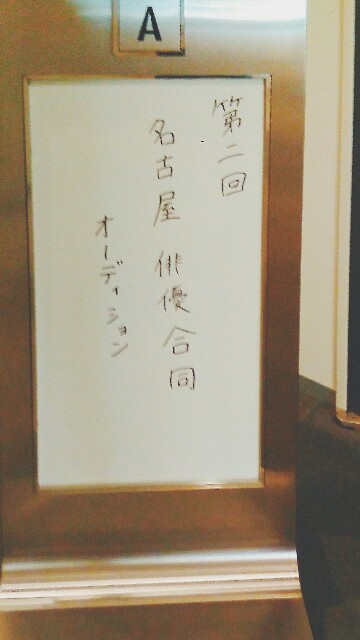 A
第二回
名古屋俳優合同
オーディション